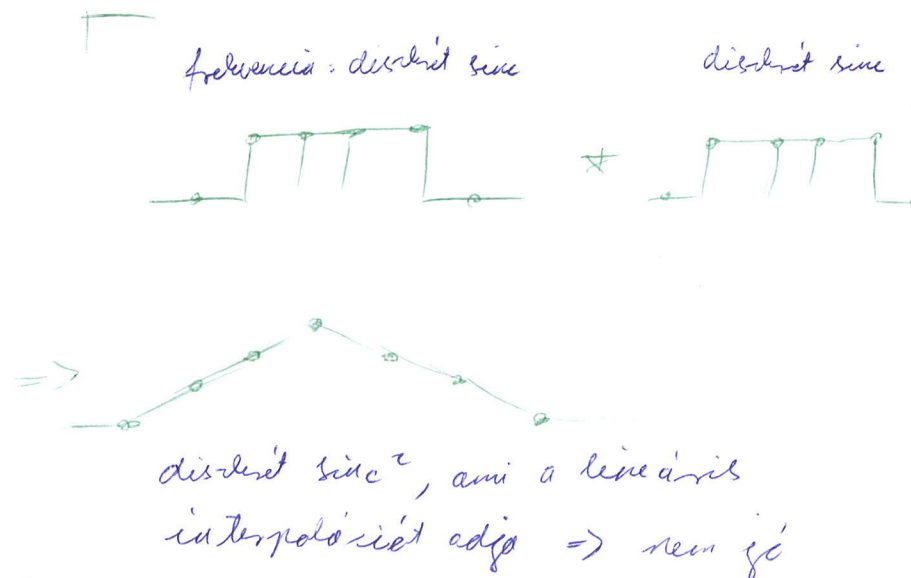 frekvencia: diszkrét sinc diszkrét sinc
*
⇒
diszkrét sinc², ami a lineáris
interpolációt adja ⇒ nem jó